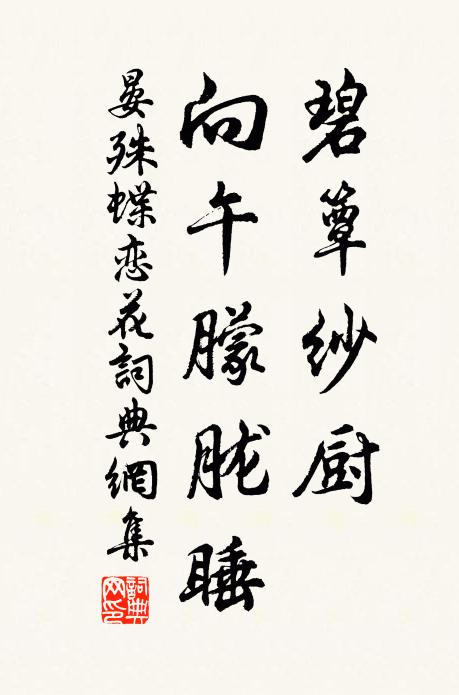 碧簟纱厨
向午朦胧睡
晏殊蝶恋花詞典網集
詞典網印